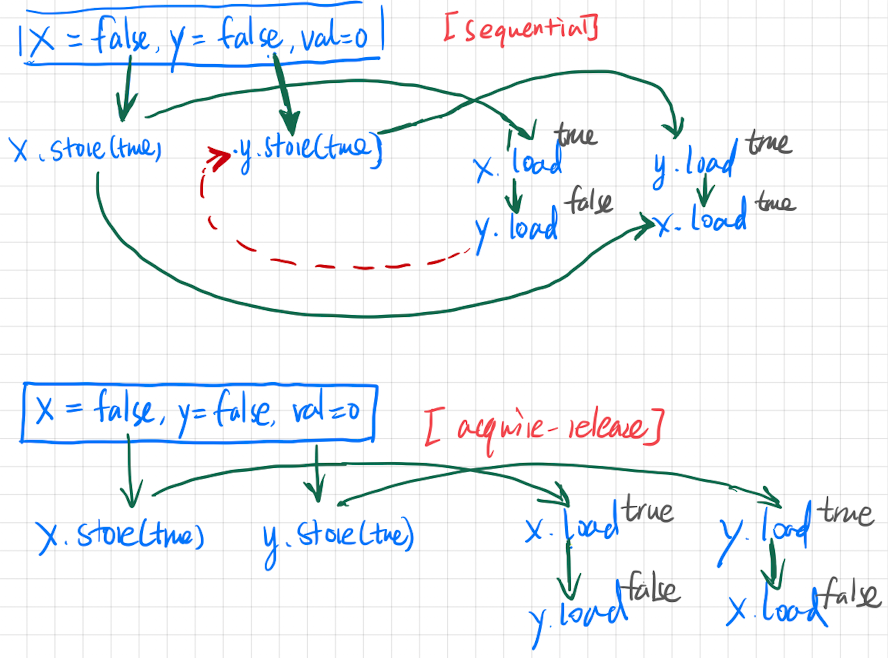 X = false, y = false, val=0
[sequential]
x.store(true)
y.store(true)
x.load true
y.load true
y.load false
x.load true
X = false, y=false, val=0
[acquire-release]
x.store(true)
y.store(true)
x.load true
y.load true
y.load false
x.load false